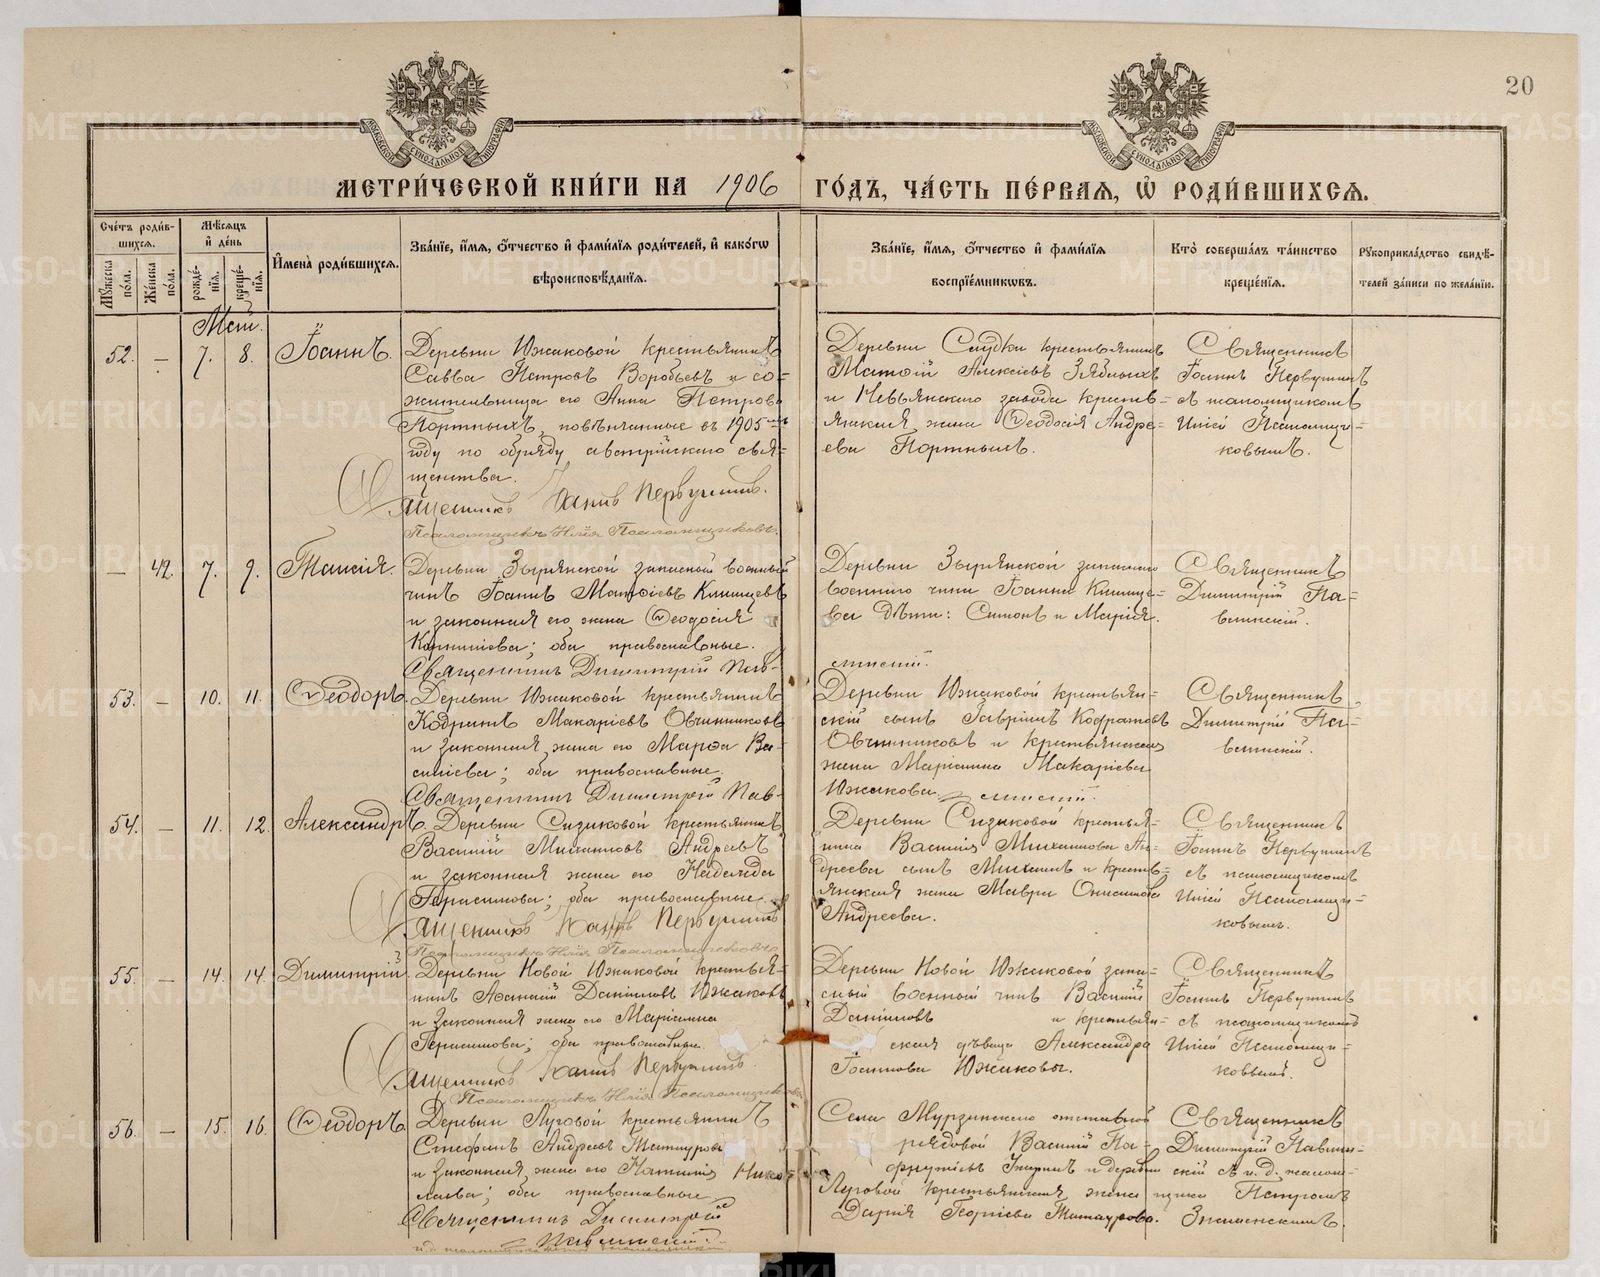 20
МОСКОВСКОЙ СѴНОДАЛЬНОЙ ТИПОГРАФІИ
МОСКОВСКОЙ СѴНОДАЛЬНОЙ ТИПОГРАФІИ
МЕТРИ́ЧЕСКОЙ КНИ́ГИ НА 1906 ГО́ДЪ, ЧА́СТЬ ПЕ́РВАЯ, Ѽ РОДИ́ВШИХСЯ.
Сче́тъ роди́в-
шихся.
Му́жеска по́ла.
Же́нска по́ла.
Мѣ́сяцъ
и҆ де́нь
рожде́-
нія.
креще́-
нія.
И҆мена̀ роди́вшихся.
Зва́нїе, и҆́мя, ѻ҆́тчество и҆ фами́лїя роди́телей, и҆ како́гѡ
вѣроисповѣ́данїя.
Зва́нїе, и҆́мя, ѻ҆́тчество и҆ фами́лїя
воспрїе́мникѡвъ.
Кто̀ соверша́лъ та́инство
креще́нїя.
Рукоприкла́дство свидѣ́-
телей за́писи по жела́нїю.
Май.
52. — 7. 8. Іоаннъ.
Деревни Южаковой крестьянинъ
Савва Петровъ Воробьевъ и со=
жительница его Анна Петрова
Портныхъ, повѣнчанные въ 1905
году по обряду австрійскаго свя=
щенства.
Священникъ Іоаннъ Первушинъ.
Псаломщикъ Илія Псаломщиковъ.
Деревни Слудки крестьянинъ
Матѳій Алексіевъ Зяблыхъ
и Невьянскаго завода крестъ=
янская жена Ѳеодосія Андре=
ева Портныхъ.
Священникъ
Іоаннъ Первушинъ
съ псаломщикомъ
Иліей Псаломщи=
ковымъ.
— 42. 7. 9. Таисія.
Деревни Зырянской запасный военный
чинъ Іоаннъ Матѳіевъ Клищевъ
и законная его жена Ѳеодосія
Корниліева; оба православные.
Священникъ Димитрій Пав-
линскій.
Деревни Зырянской запаснаго
военнаго чина Іоанна Клище=
ва дѣти: Симонъ и Марія.
Священникъ
Димитрій Па=
влинскій.
53. — 10. 11. Ѳеодоръ.
Деревни Южаковой крестьянинъ
Кодратъ Макаріевъ Овчинниковъ
и законная жена его Марѳа Ва=
силіева; оба православные.
Священникъ Димитрій Пав-
линскій.
Деревни Южаковой крестьян=
скій сынъ Гавріилъ Кодратовъ
Овчинниковъ и крестьянская
жена Маріамна Макаріева
Южакова.
Священникъ
Димитрій Па=
влинскій.
54. — 11. 12. Александръ.
Деревни Сизиковой крестьянинъ
Василій Михаиловъ Андреевъ
и законная жена его Надежда
Герасимова; оба православные.
Священникъ Іоаннъ Первушинъ
Псаломщикъ Илія Псаломщиковъ
Деревни Сизиковой крестья=
нина Василія Михаилова Ан=
дреева сынъ Михаилъ и кресть=
янская жена Мавра Онисимова
Андреева.
Священникъ
Іоаннъ Первушинъ
съ псаломщикомъ
Иліей Псаломщи=
ковымъ.
55. — 14. 14. Димитрій.
Деревни Новой Южаковой крестья=
нинъ Аѳанасій Даніиловъ Южаковъ
и законная жена его Маріамна
Герасимова; оба православные.
Священникъ Іоаннъ Первушинъ
Псаломщикъ Илія Псаломщиковъ
Деревни Новой Южаковой запа=
сный военный чинъ Василій
Даніиловъ и крестьян=
ская дѣвица Александра
Іоаннова Южаковы.
Священникъ
Іоаннъ Первушинъ
съ псаломщикомъ
Иліей Псаломщи=
ковымъ.
56. — 15. 16. Ѳеодоръ.
Деревни Луговой крестьянинъ
Стефанъ Андреевъ Татауровъ
и законная жена его Наталія Нико=
лаева; оба православные.
Священникъ Димитрій
Павлинскій.
Села Мурзинскаго отставной
рядовой Василій Па=
фнутіевъ и деревни
Луговой крестьянская жена
Дарія Георгіева Татаурова.
Священникъ
Димитрій Павлин=
скій съ и. д. псалом=
щика Петромъ
Знаменскимъ.
METRIKI.GASO-URAL.RU